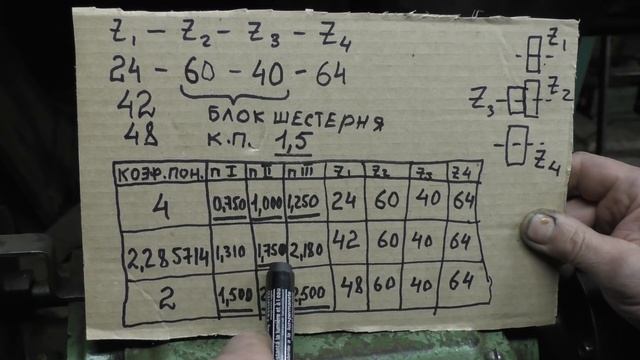 Z₁ – Z₂ – Z₃ – Z₄
24 – 60 – 40 – 64
42
БЛОК ШЕСТЕРНЯ
48
К.П. 1,5
Z₁
Z₃ Z₂
Z₄
КОЭФ.ПОН. п I п II п III Z₁ Z₂ Z₃ Z₄
4 0,750 1,000 1,250 24 60 40 64
2,285714 1,310 1,750 2,180 42 60 40 64
2 1,500 2,500 48 60 40 64